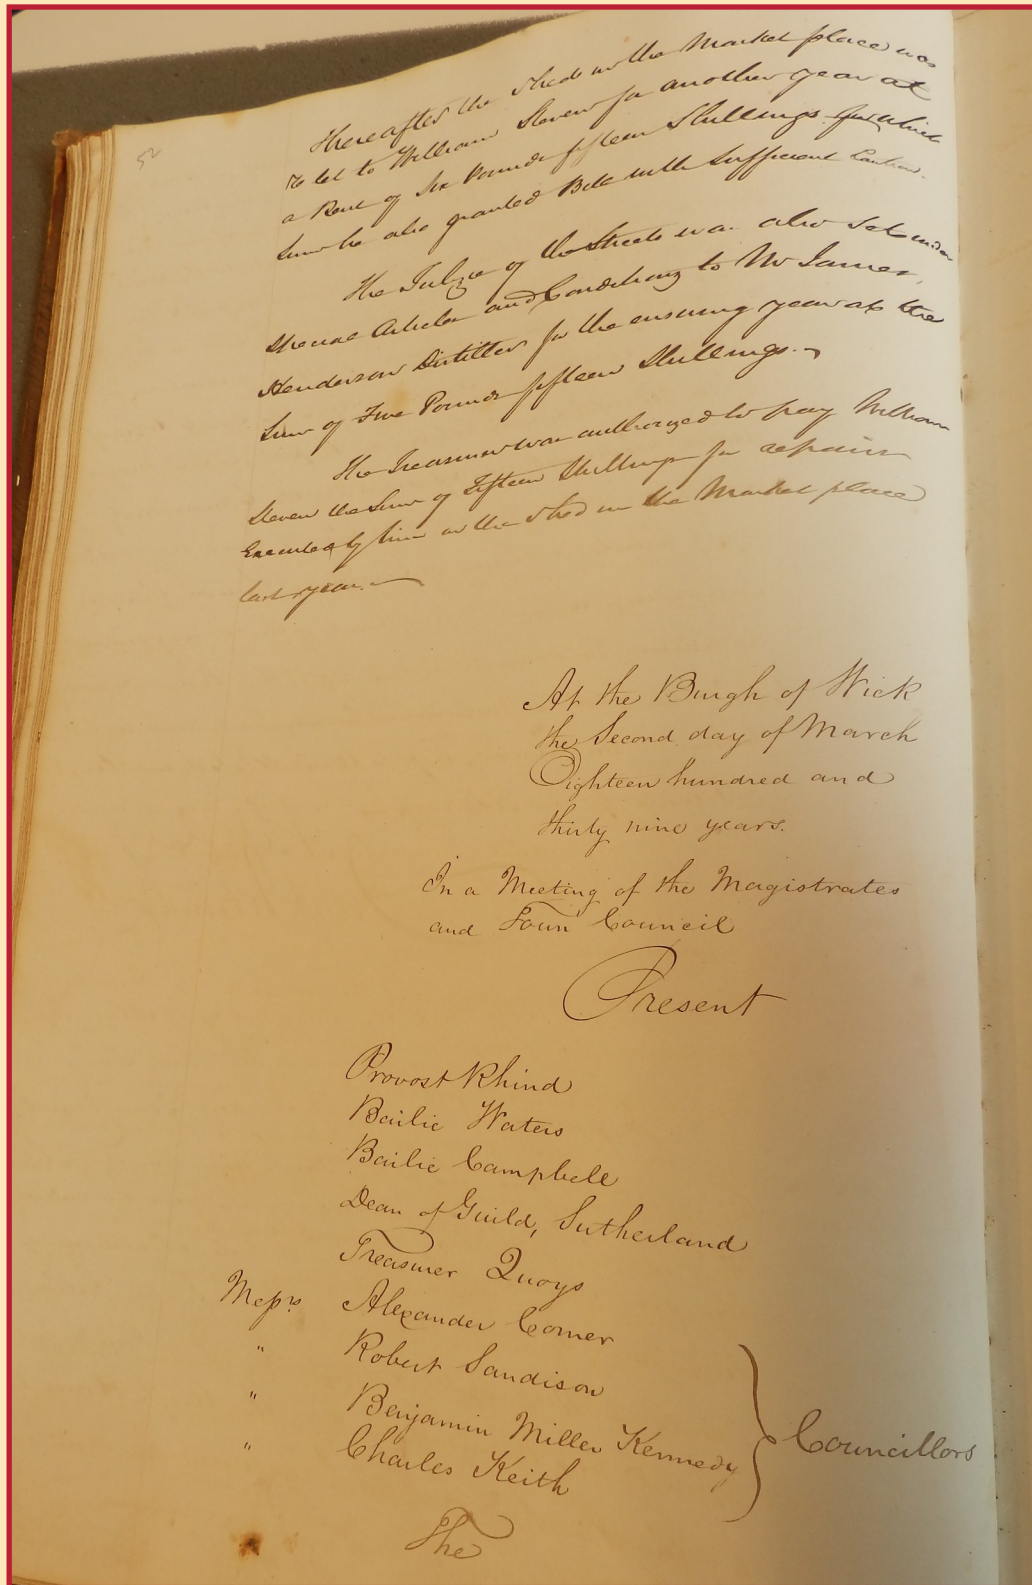 52
Thereafter the Shed in the Market place was
re let to William Steven for another year at
a Rent of Six Pounds fifteen Shillings for which
Sum he also granted Bill with sufficient Caution.
The Fulzie of the Streets was also set under
the use Articles and Conditions to Mr James
Henderson Distiller for the ensuing year at the
Sum of Five Pounds fifteen Shillings.
The Treasurer was authorized to pay William
Steven the Sum of Fifteen Shillings for repairs
Executed by him on the Shed in the Market place
last year.
At the Burgh of Wick
the Second day of March
Eighteen hundred and
thirty nine years.
In a Meeting of the Magistrates
and Town Council
Present
Provost Rhind
Bailie Waters
Bailie Campbell
Dean of Guild, Sutherland
Treasurer Quoys
Messrs Alexander Corner
" Robert Sandison
" Benjamin Miller Kennedy
" Charles Keith
Councillors
The